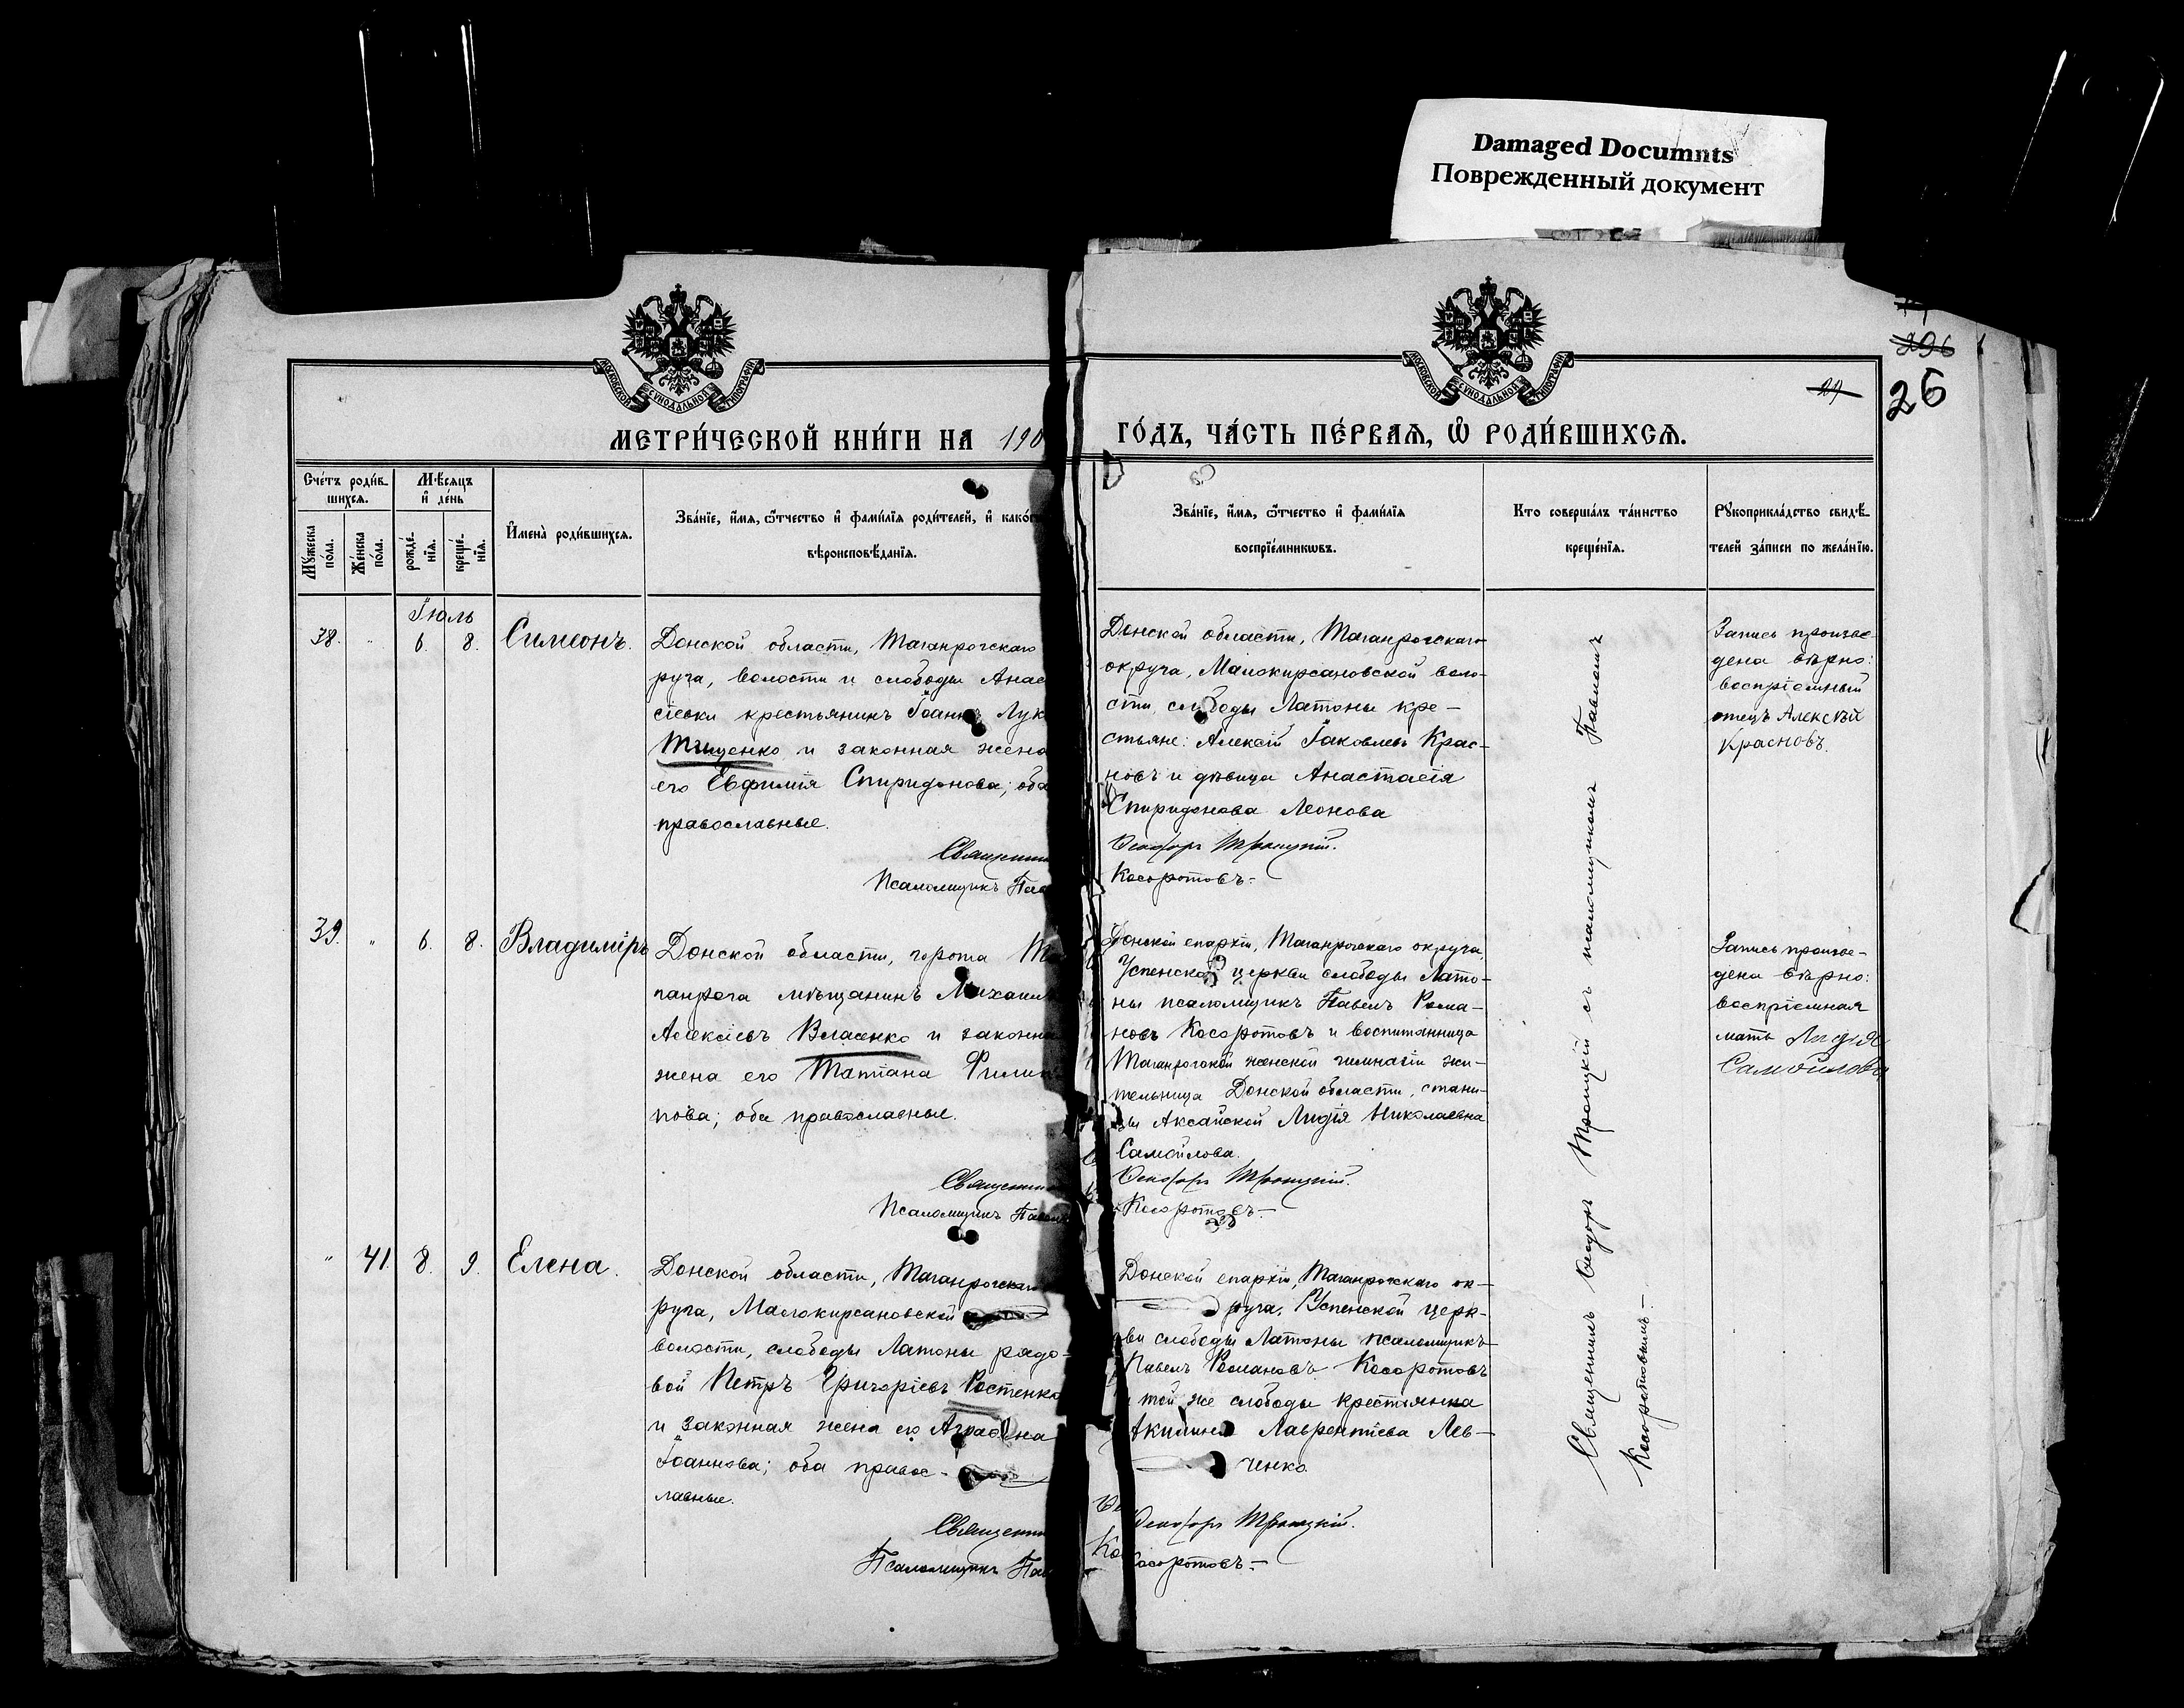 Damaged Documnts
Поврежденный документ
296
26
29
МОСКОВСКОЙ СѴНОДАЛЬНОЙ ТИПОГРАФІИ
МОСКОВСКОЙ СѴНОДАЛЬНОЙ ТИПОГРАФІИ
МЕТРИ́ЧЕСКОЙ КНИ́ГИ НА 190
ГО́ДЪ, ЧА́СТЬ ПЕ́РВАѦ, Ѡ҆ РОДИ́ВШИХСѦ.
Сче́тъ роди́в-
шихсѧ.
Мꙋ́жеска
по́ла.
Же́нска
по́ла.
Мѣ́сѧцъ
и҆ де́нь
рожде́-
нїѧ.
креще́-
нїѧ.
И҆мена̀ роди́вшихсѧ.
Зва́нїе, и҆́мѧ, ѻ҆́тчество и҆ фами́лїѧ роди́телей, и҆ како́
вѣроисповѣ́данїѧ.
Зва́нїе, и҆́мѧ, ѻ҆́тчество и҆ фами́лїѧ
воспрїе́мникѡвъ.
Кто соверша́лъ та́инство
креще́нїѧ.
Рꙋкоприкла́дство свидѣ́-
телей за́писи по жела́нїю.
Іюль
38. " 6. 8. Симеонъ.
Донской области, Таганрогскаго
руга, волости и слободы Анас
сіевки крестьянинъ Іоаннъ Лук
Тищенко и законная жена
его Евфимія Спиридонова; оба
православные.
Священни
Псаломщикъ Пав
Донской области, Таганрогскаго
округа, Малокирсановской воло-
сти, слободы Латоны кре-
стьяне: Алексій Іаковлевъ Крас-
новъ и дѣвица Анастасія
Спиридонова Леонова
Ѳеодоръ Троицкій.
Косоротовъ.-
Запись произве-
дена вѣрно:
воспріемный
отецъ Алексѣй
Красновъ.
39. " 6. 8. Владиміръ
Донской области, города Та
ганрога мѣщанинъ Михаил
Алексіевъ Власенко и законна
жена его Татіана Филип-
пова; оба православные.
Священни
Псаломщикъ Павел
Донской епархіи, Таганрогскаго округа,
Успенской церкви слободы Лато-
ны псаломщикъ Павелъ Рома-
новъ Косоротовъ и воспитанница
Таганрогской женской гимназіи жи-
тельница Донской области, стани-
цы Аксайской Лидія Николаевна
Самойлова.
Ѳеодоръ Троицкій.
Косоротовъ.-
Запись произве-
дена вѣрно:
воспріемная
мать Лидія
Самойлова
" 41. 8. 9. Елена.
Донской области, Таганрогскаго
руга, Малокирсановской
волости, слободы Латоны рядо-
вой Петръ Григоріевъ Ростенко
и законная жена его Аграфена
Іоаннова; оба правос-
лавные.
Священни
Псаломщикъ Пав
Донской епархіи, Таганрогскаго ок-
руга, Успенской церк-
ви слободы Латоны псаломщикъ
Павелъ Романовъ Косоротовъ
и той же слободы крестьянка
Акилина Лаврентіева Лев-
ченко.
Ѳеодоръ Троицкій.
Косоротовъ.-
Священникъ Ѳеодоръ Троицкій съ псаломщикомъ Павломъ
Косоротовымъ.-